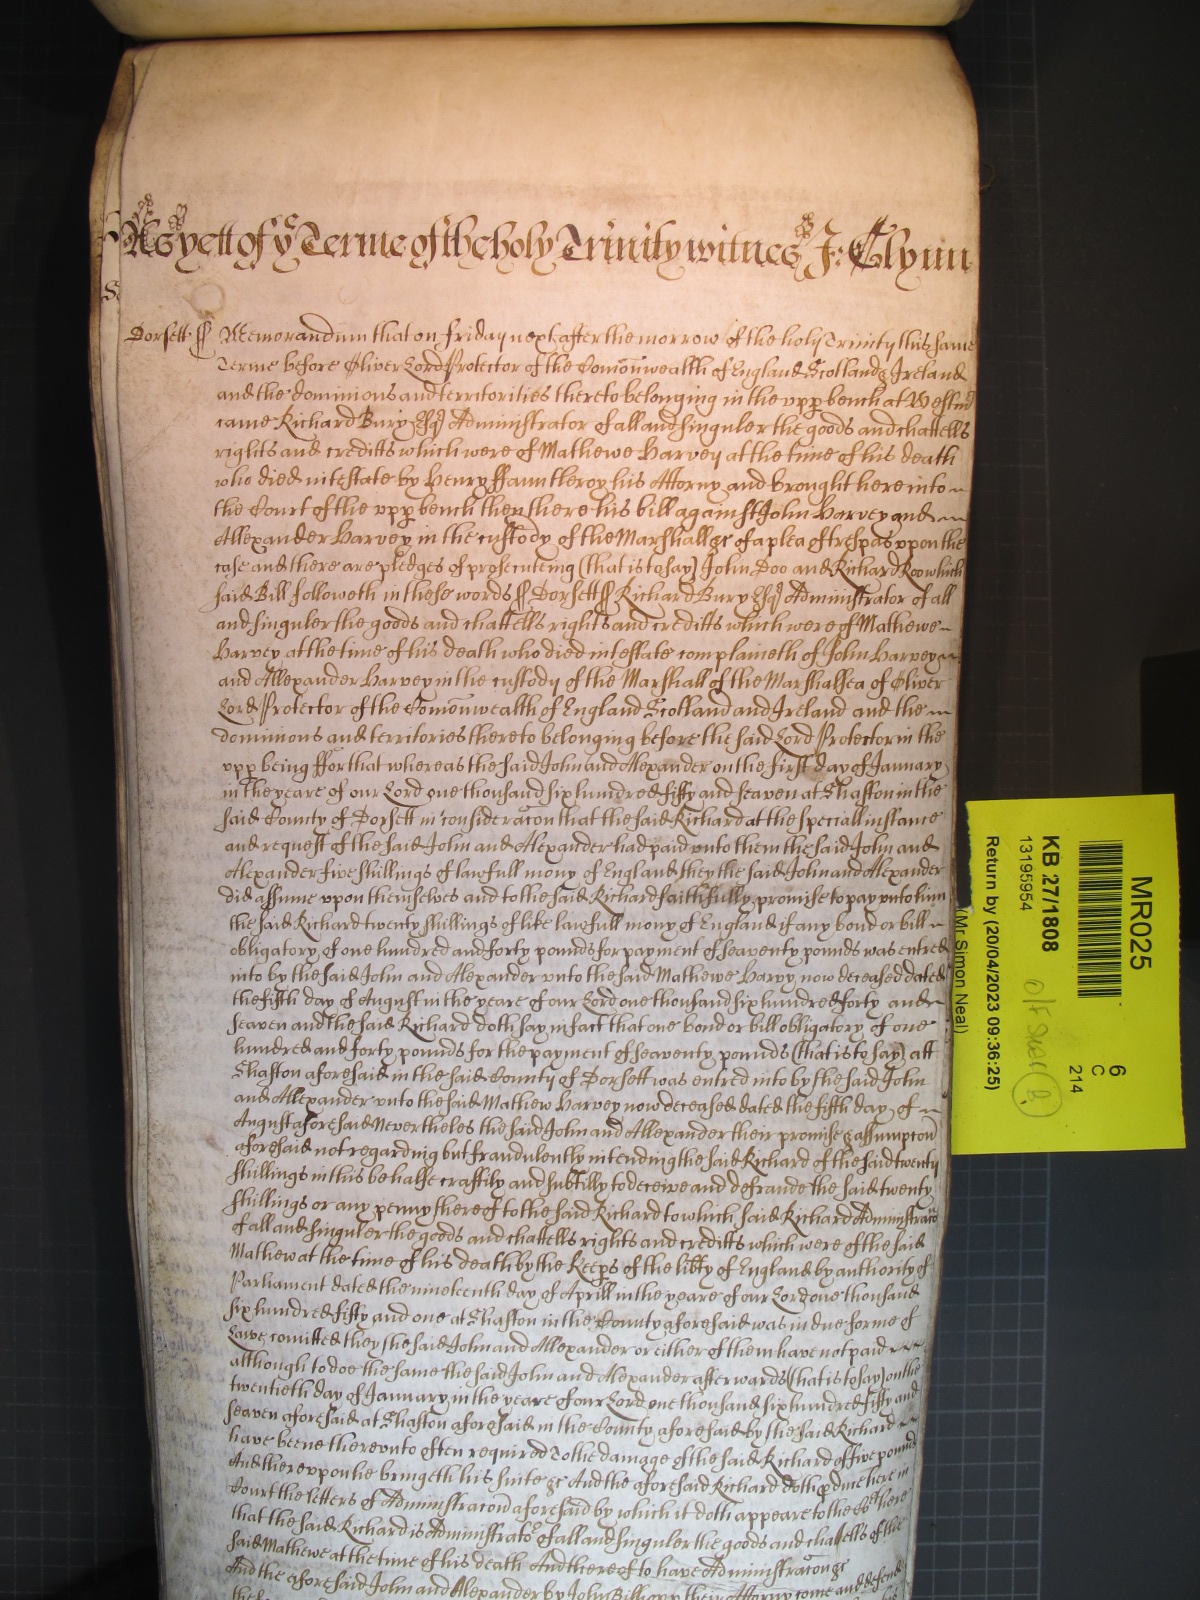 As yett of ye Terme of the holy Trinity witnes J: Glynn
Dorsett ss Memorandum that on Friday next after the morrow of the holy Trinity this same
Terme before Oliver Lord Protector of the Comonwealth of England Scotland & Ireland
and the dominions and territories thereto belonging in the upp bench at Westmr
came Richard Bury Esqr Administrator of all and singuler the goods and chattells
rights and creditts which were of Mathewe Harvey at the time of his death
who died intestate by Henry ffauntleroy his Attorny and brought here into
the Court of the upp bench then there his bill against John Harvey and
Allexander Harvey in the custody of the Marshall &c of a plea of trespas upon the
case and there are pledges of prosecuteing (that is to say) John Doo and Richard Roo which
said Bill followeth in these words ss Dorsett ss Richard Bury Esqr Administrator of all
and singuler the goods and chattells rights and creditts which were of Mathewe
Harvey at the time of his death who died intestate complaineth of John Harvey
and Allexander Harvey in the custody of the Marshall of the Marshalsea of Oliver
Lord Protector of the Comonwealth of England Scotland and Ireland and the
dominions and territories thereto belonging before the said Lord Protector in the
upp being ffor that whereas the said John and Alexander on the first day of January
in the yeare of our Lord one thousand six hundred fifty and seaven at Shaston in the
said County of Dorsett in consideracon that the said Richard at the speciall instance
and request of the said John and Alexander had paid unto them the said John and
Alexander five shillings of lawfull mony of England they the said John and Alexander
did assume upon themselves and to the said Richard faithfully promise to pay unto him
the said Richard twenty shillings of like lawfull mony of England if any bond or bill
obligatory of one hundred and forty pounds for payment of seaventy pounds was entred
into by the said John and Alexander unto the said Mathewe Harvy now deceased dated
the fifth day of August in the yeare of our Lord one thousand six hundred forty and
seaven and the said Richard doth say in fact that one bond or bill obligatory of one
hundred and forty pounds for the payment of seaventy pounds (that is to say) att
Shaston aforesaid in the said County of Dorsett was entred into by the said John
and Allexander unto the said Mathew Harvey now deceased dated the fifth day of
August aforesaid Neverthelesse the said John and Allexander their promise & assumpton
aforesaid not regarding but fraudulently intending the said Richard of the said twenty
shillings in this behalfe craftily and subtilly to deceive and defraude the said twenty
shillings or any penny thereof to the said Richard to which said Richard Administracon
of all and singuler the goods and chattells rights and creditts which were of the said
Mathew at the time of his death by the Keeps of the libty of England by authority of
Parliament dated the nineteenth day of Aprill in the yeare of our Lord one thousand
six hundred fifty and one at Shaston in the County aforesaid was in due forme of
Lawe comitted they the said John and Allexander or either of them have not paid
although to doe the same the said John and Alexander afterwards (that is to say) on the
twentieth day of January in the yeare of our Lord one thousand six hundred fifty and
seaven aforesaid at Shaston aforesaid in the County aforesaid by the said Richard
have beene thereunto often required To the damage of the said Richard of five pounds
And thereupon he bringeth his suite &c And the aforesaid Richard doth pduce here in
Court the letters of Administracon aforesaid by which it doth appeare to the Cot here
that the said Richard is Administrator of all and singuler the goods and chattells of the
said Mathewe at the time of his death And thereof to have Administracon &c
And the aforesaid John and Alexander by John their Attorny come and defend
MR025
6
C
214
KB 27/1808
13195954
Return by (20/04/2023 09:36:25)
(Mr Simon Neal)